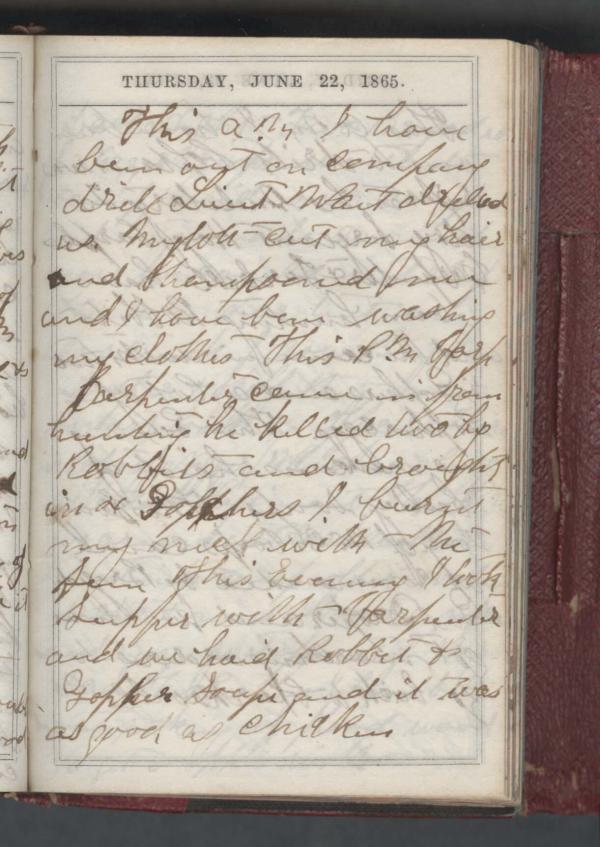 THURSDAY, JUNE 22, 1865.
This a.m. I have
been out on company
drill Lieut drilled
us. cut my hair
and Shampooned me
and I have been washing
my clothes This P.M. Corp
Carpenter came in from
hunting he killed two
Robbits and brought
in & Gophers I burnt
my neck with the
Sun This Evening I took
Supper with Carpenter
and we haid Robbit &
Gopher Soup and it was
as good as chicken